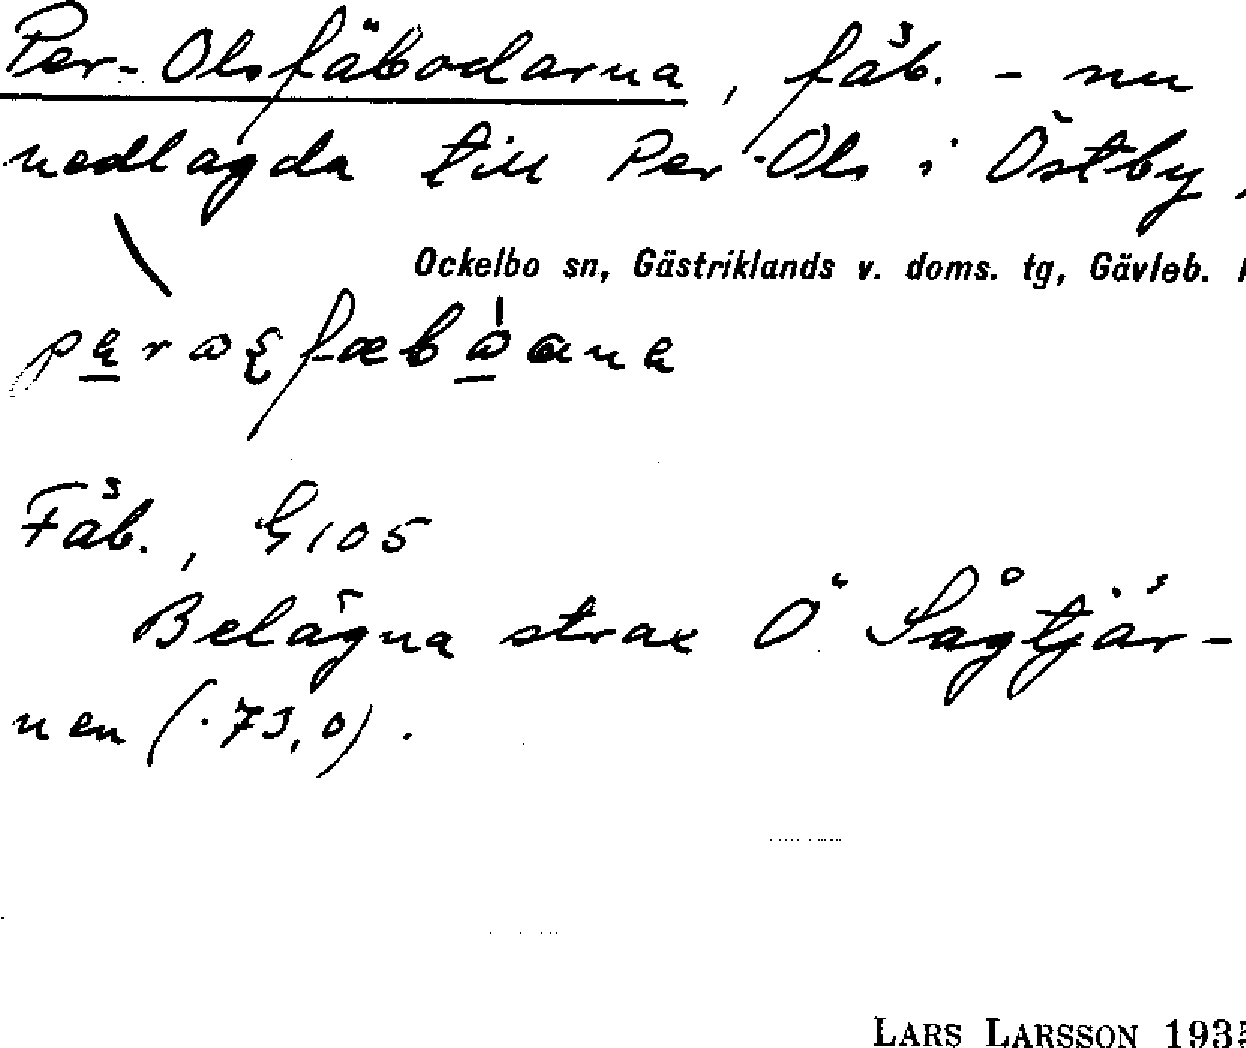 Per-Olsfäbodarna, fäb. - nu
nedlagda till Per-Ols i Östby,
Ockelbo sn, Gästriklands v. doms. tg, Gävleb.
Fäb., G105
Belägna strax Ö Sågtjär-
nen (.73,0).
LARS LARSSON 193